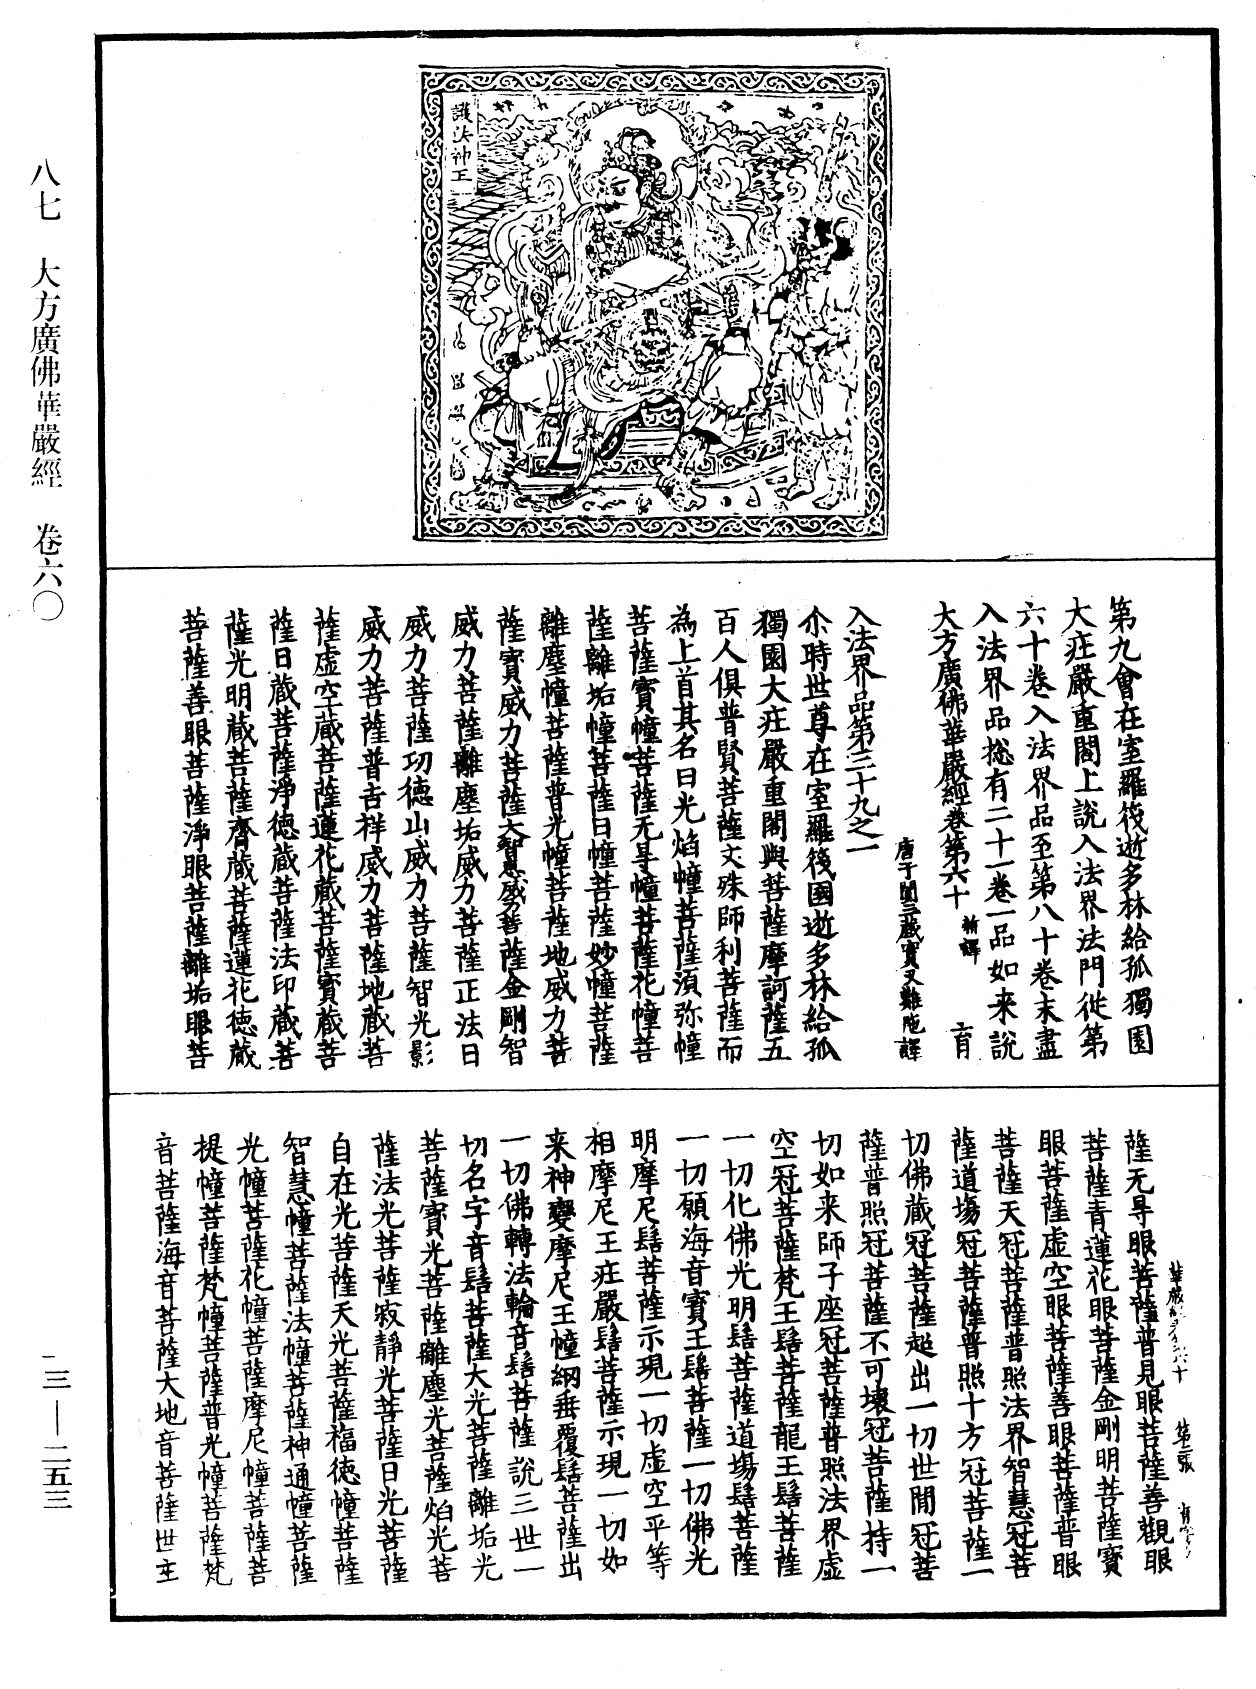 八七　大方廣佛華嚴經　卷六〇
護法神王
第九會在室羅筏逝多林給孤獨園
大庄嚴重閣上說入法界法門従第
六十卷入法界品至第八十卷末盡
入法界品捴有二十一卷一品如来說
大方廣佛華嚴經卷第六十　新譯　育
唐于闐三藏實叉難陁譯
入法界品第三十九之一
尒時世尊在室羅筏國逝多林給孤
獨園大庄嚴重閣與菩薩摩訶薩五
百人俱普賢菩薩文殊師利菩薩而
為上首其名曰光焰幢菩薩須弥幢
菩薩寳幢菩薩无㝵幢菩薩花幢菩
薩離垢幢菩薩日幢菩薩妙幢菩薩
離塵幢菩薩普光幢菩薩地威力菩
薩寳威力菩薩大智慧威力菩薩金剛智
威力菩薩離塵垢威力菩薩正法日
威力菩薩功徳山威力菩薩智光影
威力菩薩普吉祥威力菩薩地蔵菩
薩虚空蔵菩薩蓮花蔵菩薩寳蔵菩
薩日蔵菩薩淨徳蔵菩薩法印蔵菩
薩光明蔵菩薩齊蔵菩薩蓮花徳蔵
菩薩善眼菩薩淨眼菩薩離垢眼菩
薩无㝵眼菩薩普見眼菩薩善觀眼
菩薩青蓮花眼菩薩金剛明菩薩寳
眼菩薩虚空眼菩薩善眼菩薩普眼
菩薩天冠菩薩普照法界智慧冠菩
薩道塲冠菩薩普照十方冠菩薩一
切佛蔵冠菩薩超出一切世間冠菩
薩普照冠菩薩不可壊冠菩薩持一
切如来師子座冠菩薩普照法界虚
空冠菩薩梵王髻菩薩龍王髻菩薩
一切化佛光明髻菩薩道塲髻菩薩
一切願海音寳王髻菩薩一切佛光
明摩尼髻菩薩示現一切虚空平等
相摩尼王庄嚴髻菩薩示現一切如
来神變摩尼王幢網垂覆髻菩薩出
一切佛轉法輪音髻菩薩說三世一
切名字音髻菩薩大光菩薩離垢光
菩薩寳光菩薩離塵光菩薩焰光菩
薩法光菩薩寂靜光菩薩日光菩薩
自在光菩薩天光菩薩福徳幢菩薩
智慧幢菩薩法幢菩薩神通幢菩薩
光幢菩薩花幢菩薩摩尼幢菩薩菩
提幢菩薩梵幢菩薩普光幢菩薩梵
音菩薩海音菩薩大地音菩薩世主
華嚴經第六十　第二張
一三—二五三